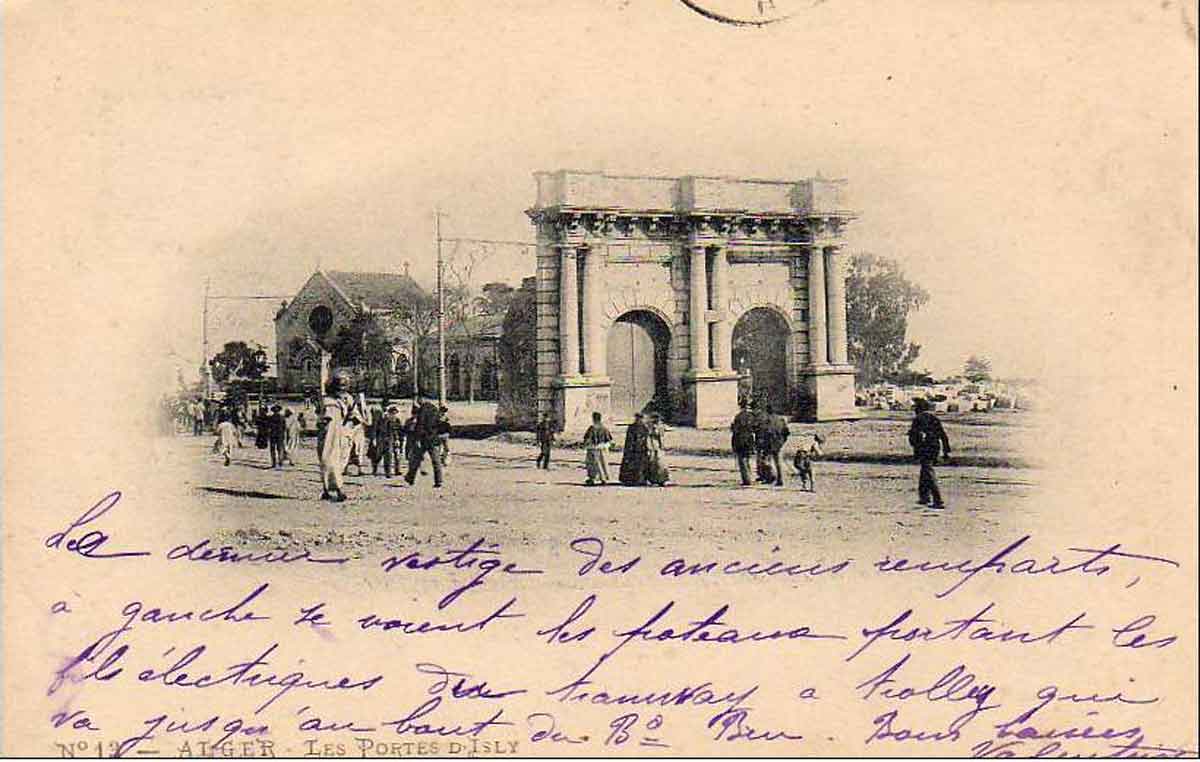 Le dernier vestige des anciens remparts,
à gauche se voient les poteaux portant les
fils électriques du tramway à trolley qui
va jusqu'au bout du Bd Bru. Bons baisers
N° 12 - ALGER - LES PORTES D'ISLY